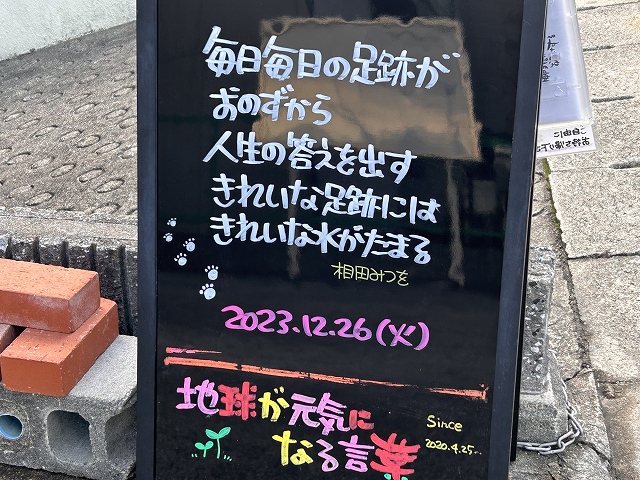 毎日毎日の足跡が
おのずから
人生の答えを出す
きれいな足跡には
きれいな水がたまる
相田みつを
2023.12.26(火)
地球が元気に
なる言葉
Since
2020.4.25..
ご自由に
お持ち帰り下